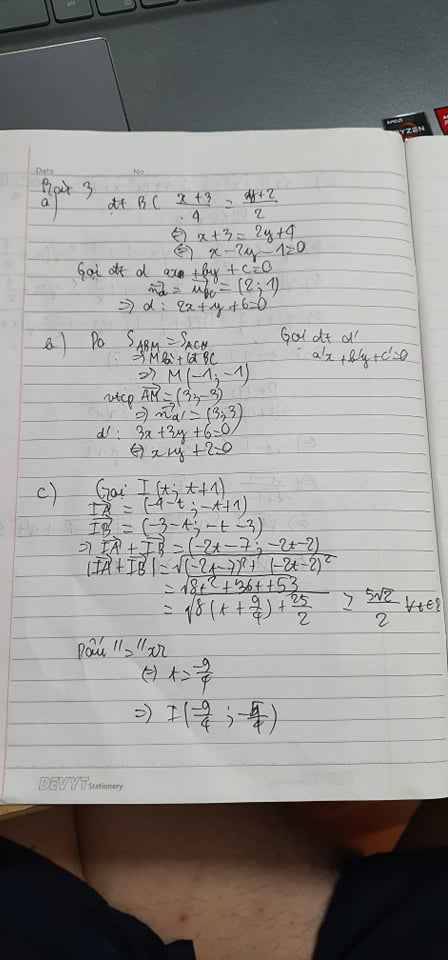 Date No
Bài 3
a) đt BC x+3/4 = y+2/2
(=) x+3 = 2y+4
(=) x-2y-1=0
Gọi đt d ax + by + c=0
n_d = u_BC = (2;1)
=> d: 2x+y+6=0
b) Do S_ABM = S_ACM Gọi đt d'
=> M là t đ BC a'x+b'y+c'=0
=> M(-1;-1)
vtcp AM = (3;-3)
=> n_d' = (3;3)
d': 3x+3y+6=0
(=) x+y+2=0
c) Gọi I(t; t+1)
IA = (-4-t; -t+1)
IB = (-3-t; -t-3)
=> IA + IB = (-2t-7; -2t-2)
|IA+IB| = √(-2t-7)²+(-2t-2)²
= √8t²+36t+53
= √8(t+9/4)+25/2 ≥ 5√2/2 ∀t∈R
Dấu "=" xr
(=) t=-9/4
=> I(-9/4; -5/4)
DEVYT Stationery
AMD
RYZEN